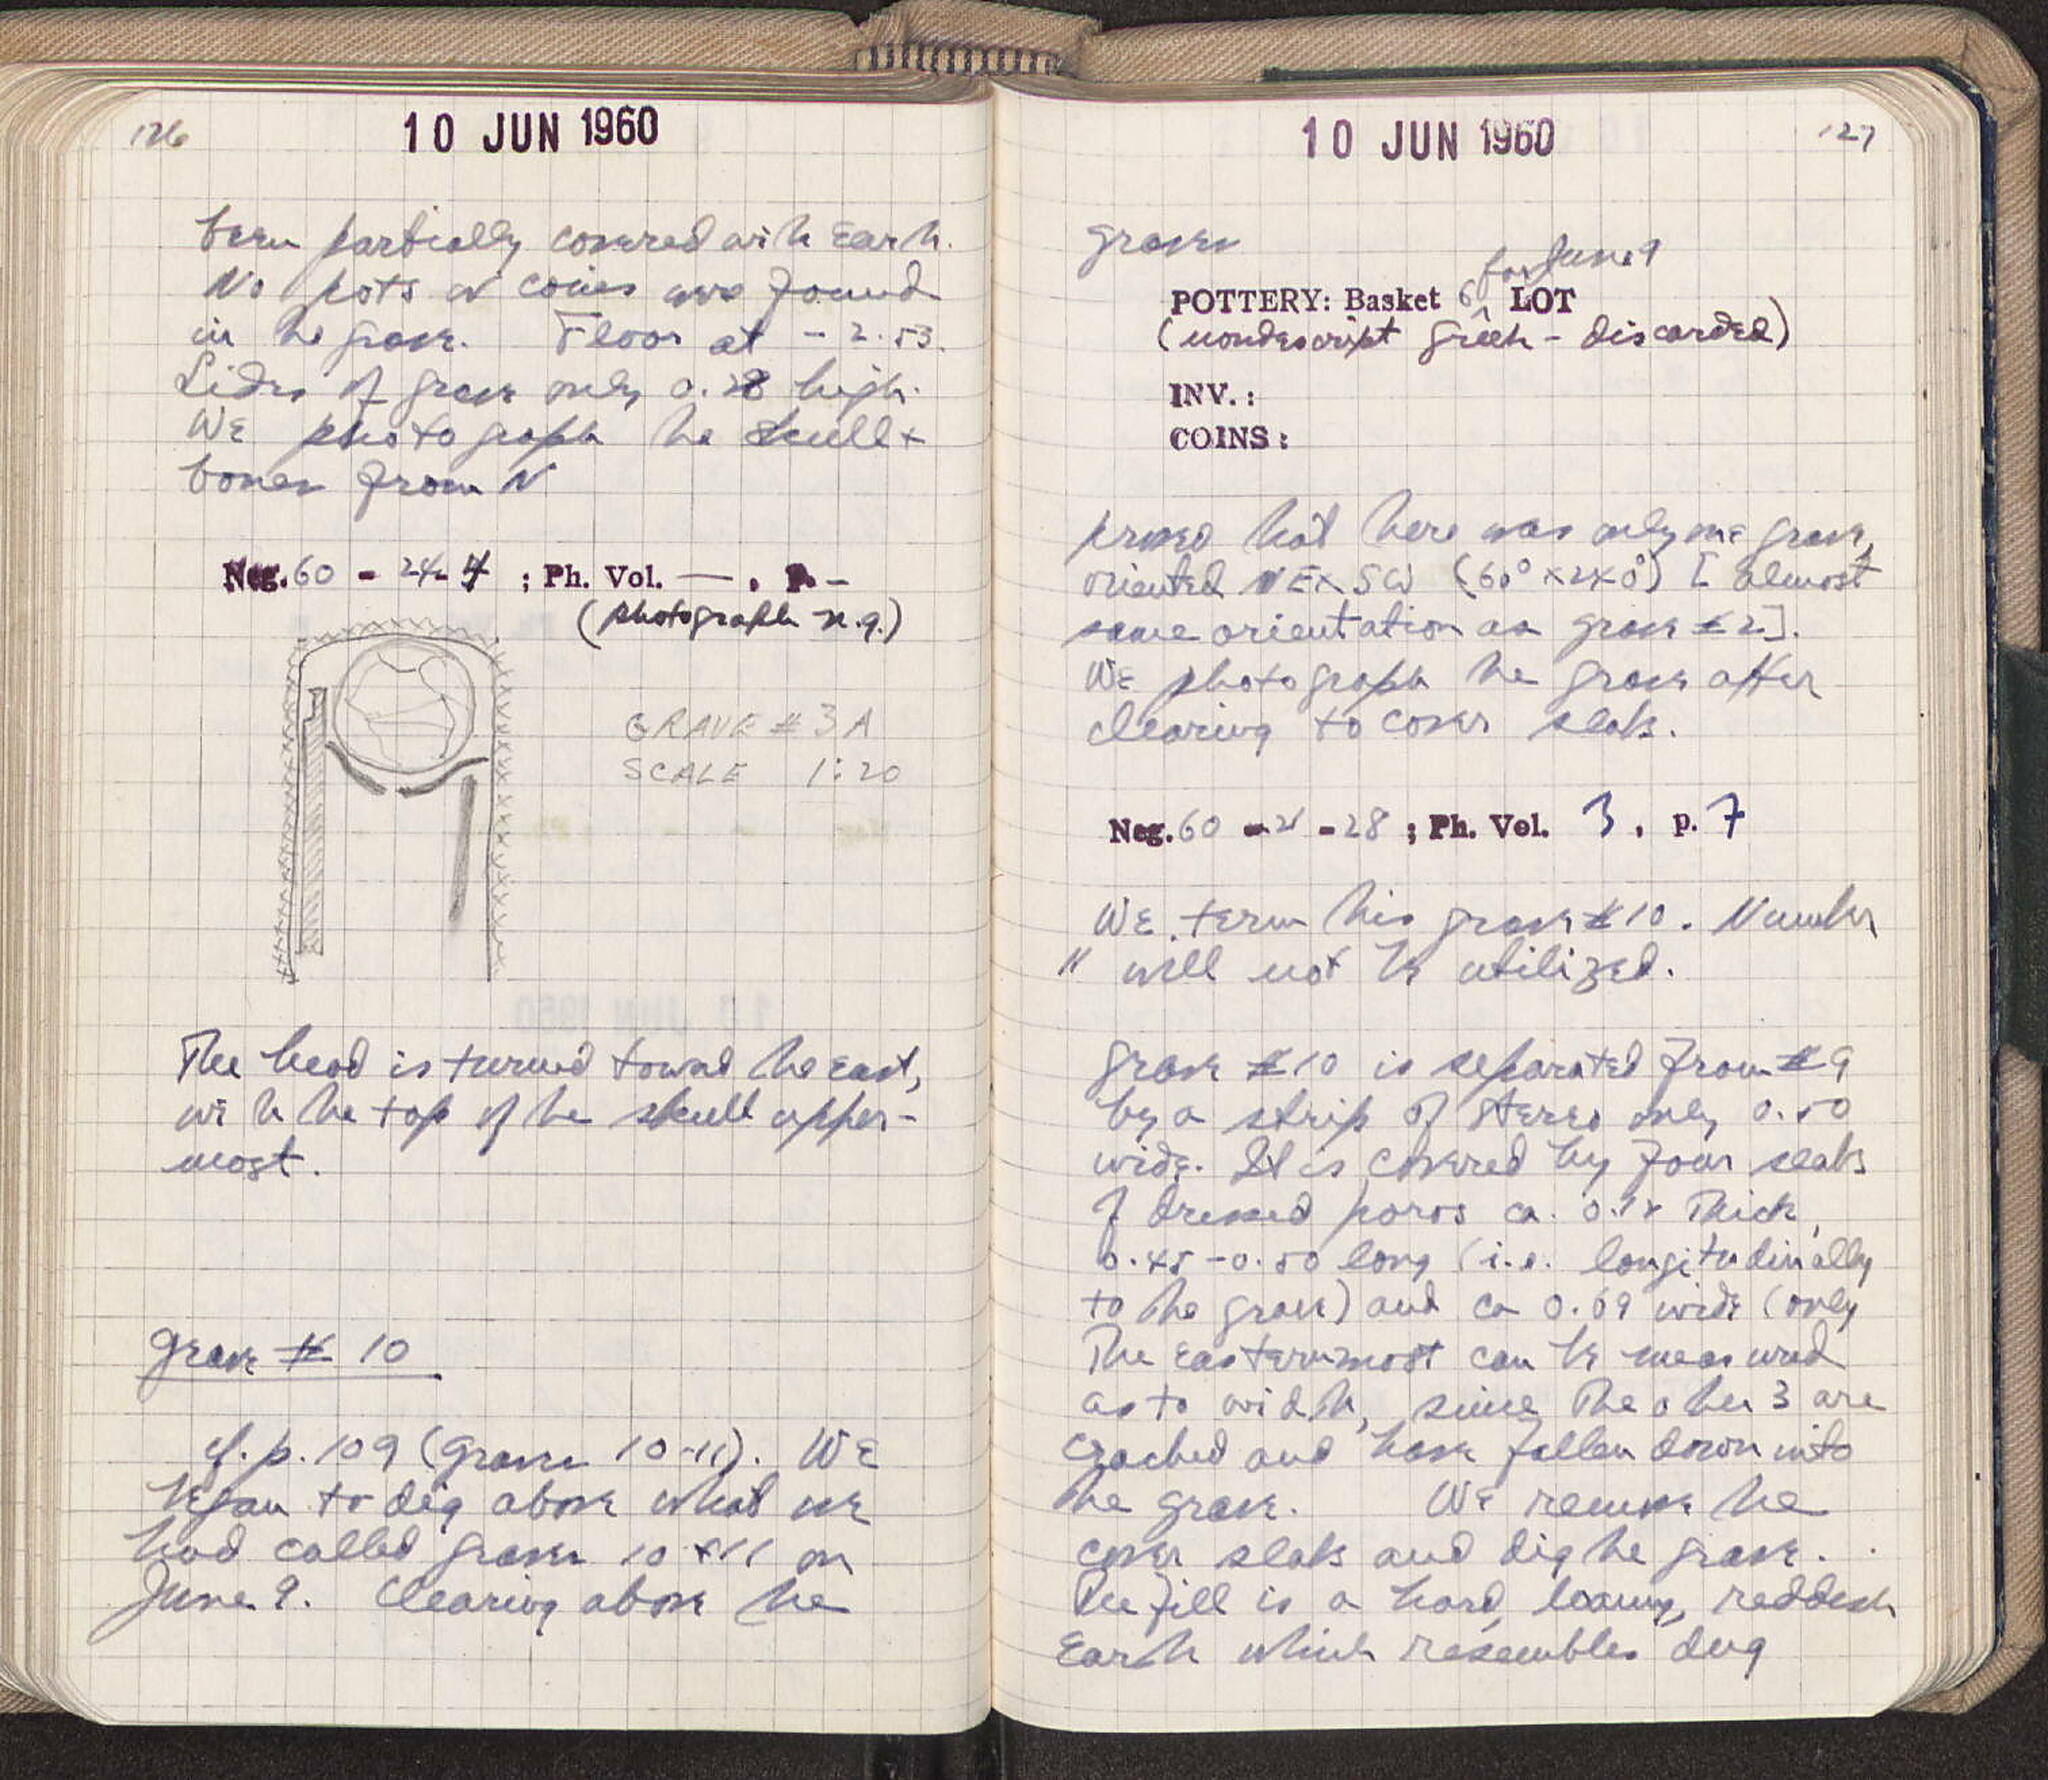 126
10 JUN 1960
been partially covered with Earth.
No pots or coins were found
in the grave. Floor at - 2.53.
Sides of grave only 0.28 high.
WE photograph the skull +
bones from N
Neg. 60 - 24-4 ; Ph. Vol. — , p. -
(photograph n.g.)
GRAVE # 3A
SCALE 1:20
The head is turned toward the east,
with the top of the skull upper-
most.
Grave # 10
cf. p. 109 (Graves 10-11). WE
began to dig above what we
had called graves 10 + 11 on
June 9. Clearing above the
10 JUN 1960
127
graves
for June 9
POTTERY: Basket 6 LOT
(nondescript Greek - discarded)
INV.:
COINS:
proved that there was only one grave,
oriented NE x SW (60° x 240°) [almost
same orientation as grave # 2].
WE photograph the grave after
clearing to cover slabs.
Neg. 60 - 21 - 28 ; Ph. Vol. 3 , p. 7
WE term this grave # 10. Number
11 will not be utilized.
Grave # 10 is separated from # 9
by a strip of stereo only 0.50
wide. It is covered by four slabs
of dressed poros ca. Thick,
0.45 - 0.50 long (i.e. longitudinally
to the grave) and ca 0.69 wide (only
The easternmost can be measured
as to width, since The other 3 are
cracked and have fallen down into
the grave. WE remove the
cover slabs and dig the grave.
The fill is a hard, loamy, reddish
Earth which resembles dug